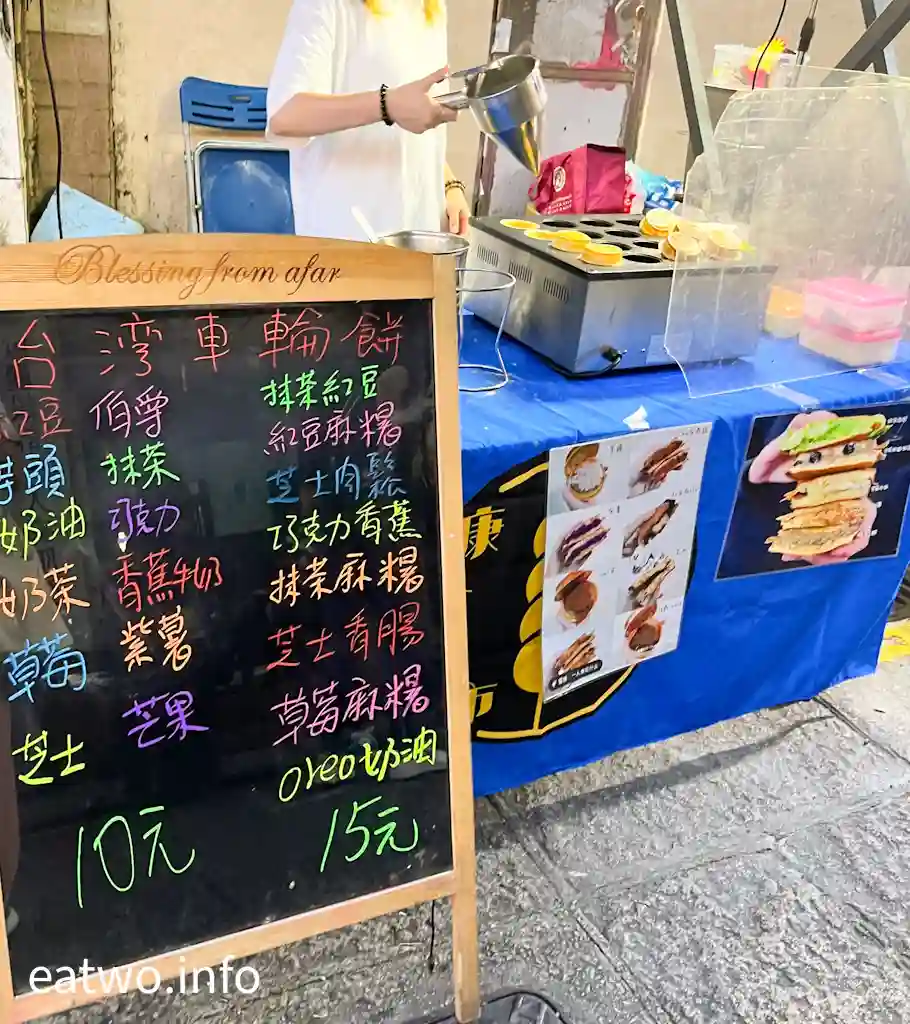 Blessing from afar
台灣車輪餅
紅豆 伯爵 抹茶紅豆
芋頭 抹茶 紅豆麻糬
奶油 巧克力 芝士肉鬆
奶茶 香蕉牛奶 巧克力香蕉
草莓 紫薯 抹茶麻糬
芝士 芒果 芝士香腸
草莓麻糬
oreo奶油
10元 15元
康
市
eatwo.info